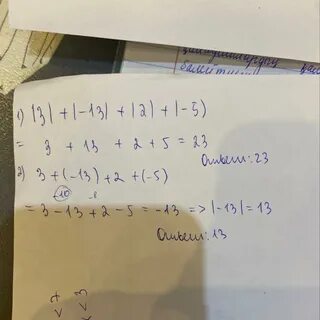 1) |3| + |-13| + |2| + |-5)
= 3 + 13 + 2 + 5 = 23
Ответ: 23
2) 3 + (-13) + 2 + (-5)
-10 -8
= 3 - 13 + 2 - 5 = -13 => |-13| = 13
Ответ: 13